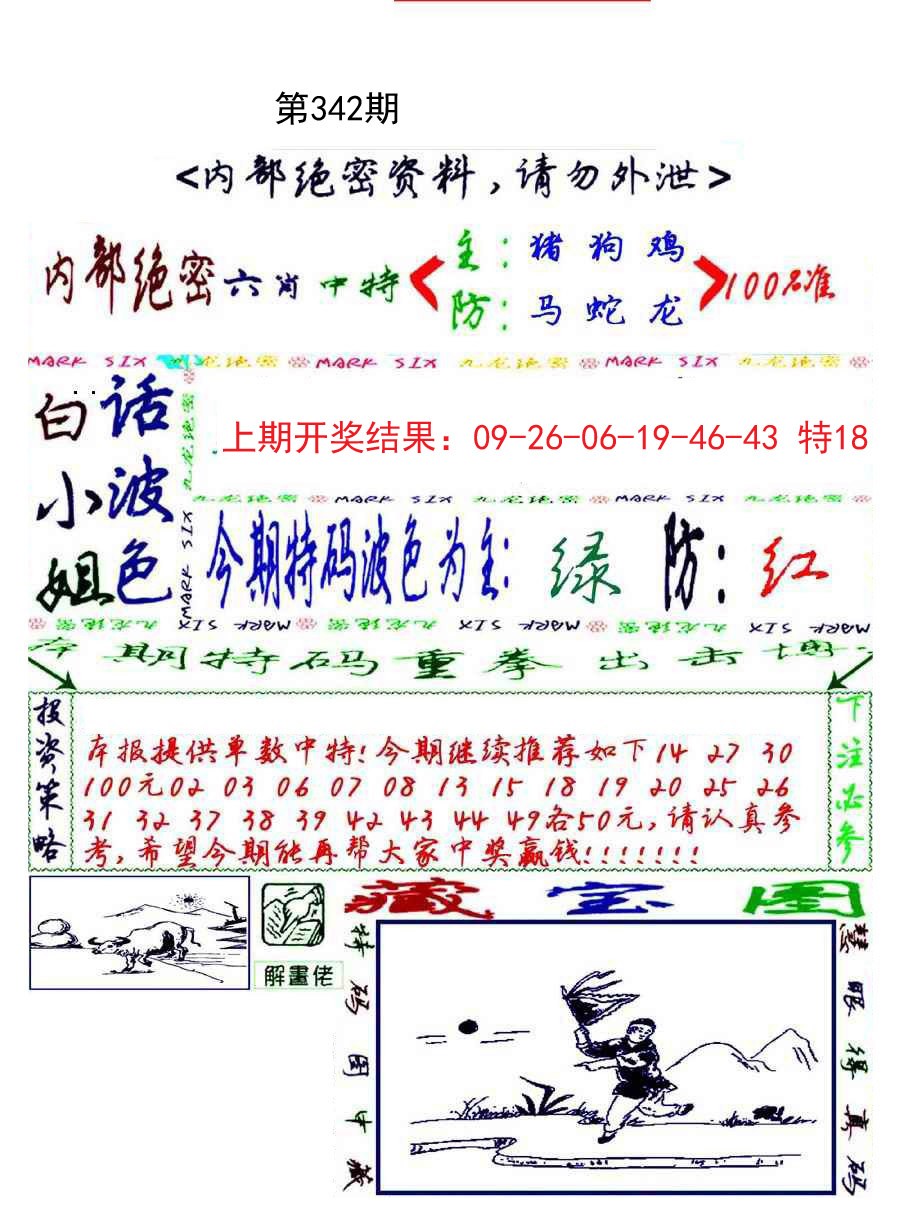 第342期
<内部绝密资料,请勿外泄>
内部绝密六肖中特
主:猪狗鸡
防:马蛇龙
100%准
MARK SIX 九龙绝密 MARK SIX 九龙绝密 MARK SIX 九龙绝密
白小姐
话波色
九龙绝密
MARK SIX
上期开奖结果：09-26-06-19-46-43 特18
九龙绝密 MARK SIX 九龙绝密 MARK SIX 九龙绝密
今期特码波色为主:绿 防:红
九龙绝密 MARK SIX 九龙绝密 MARK SIX 九龙绝密 MARK SIX
本期特码重拳出击
投资策略
本报提供单数中特!今期继续推荐如下14 27 30
100元02 03 06 07 08 13 15 18 19 20 25 26
31 32 37 38 39 42 43 44 49各50元,请认真参
考,希望今期能再帮大家中奖赢钱!!!!!!!
下注必参
解畫佬
藏宝图
特码图中藏
慧眼得真码